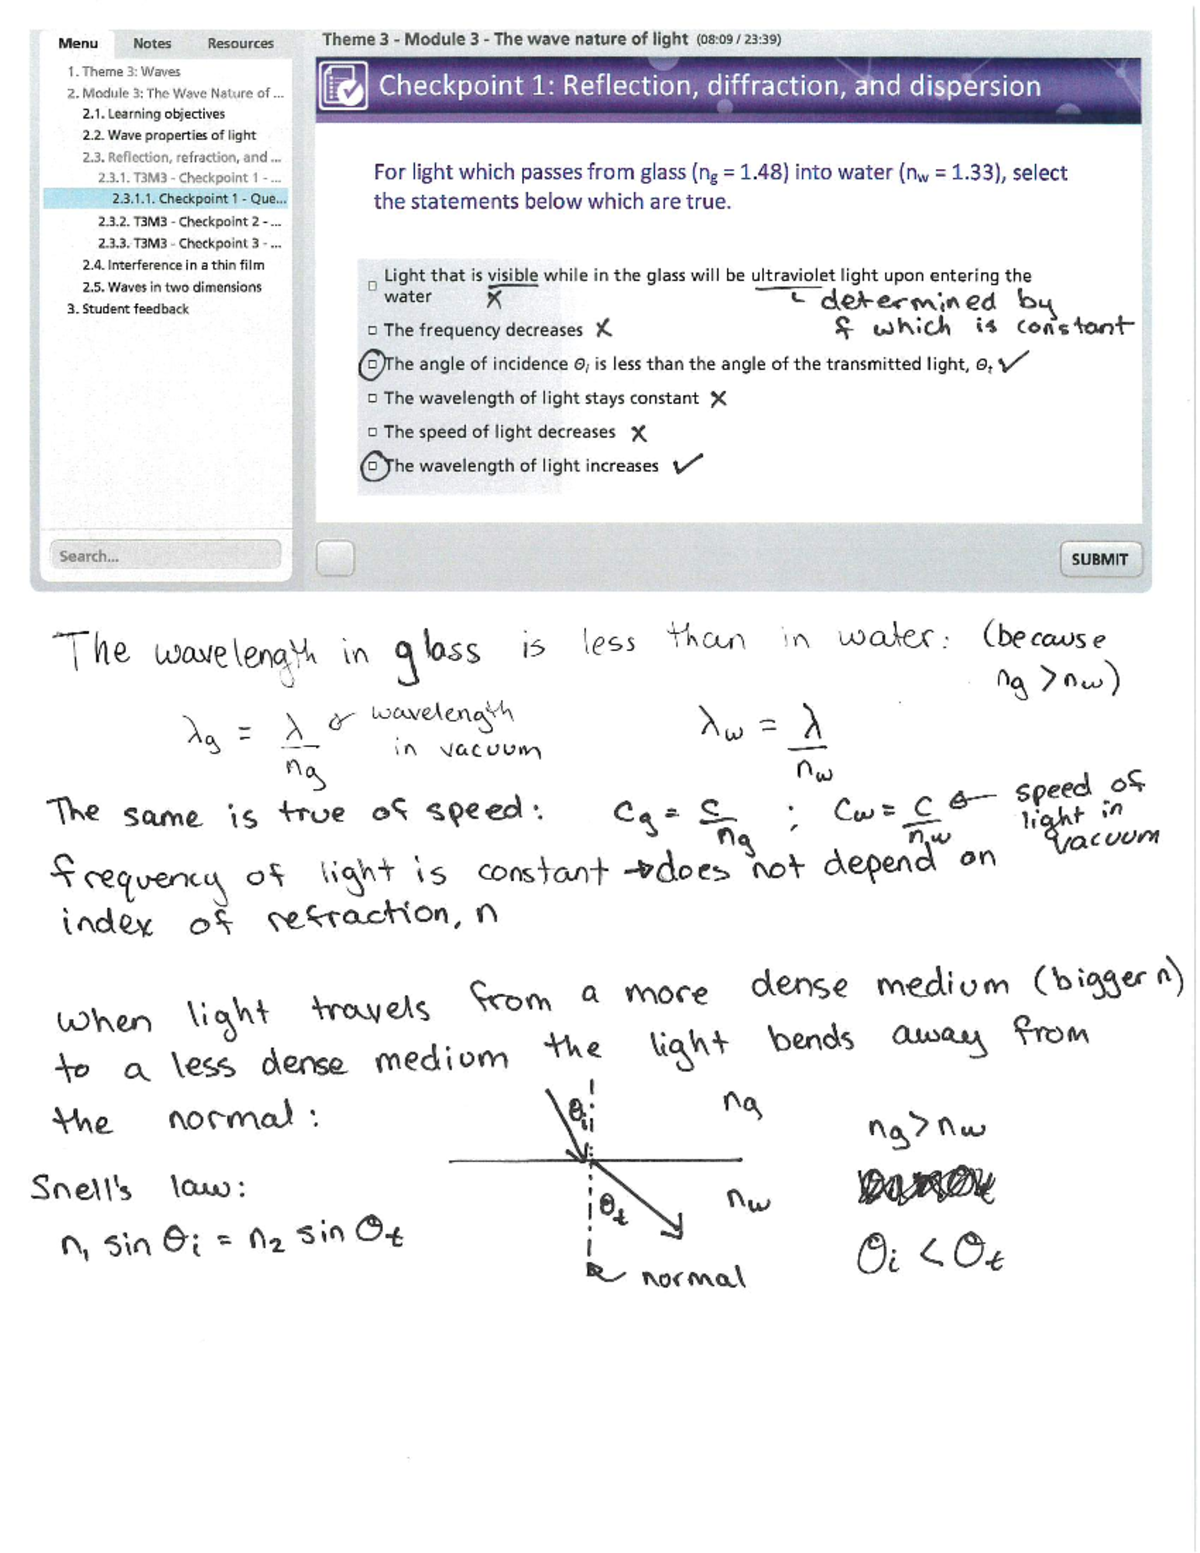 Menu Notes Resources
Theme 3 - Module 3 - The wave nature of light (08:09 / 23:39)
1. Theme 3: Waves
2. Module 3: The Wave Nature of ...
2.1. Learning objectives
2.2. Wave properties of light
2.3. Reflection, refraction, and ...
2.3.1. T3M3 - Checkpoint 1 - ...
2.3.1.1. Checkpoint 1 - Que...
2.3.2. T3M3 - Checkpoint 2 - ...
2.3.3. T3M3 - Checkpoint 3 - ...
2.4. Interference in a thin film
2.5. Waves in two dimensions
3. Student feedback
Search...
Checkpoint 1: Reflection, diffraction, and dispersion
For light which passes from glass (ng = 1.48) into water (nw = 1.33), select
the statements below which are true.
Light that is visible while in the glass will be ultraviolet light upon entering the
water X
determined by
f which is constant
The frequency decreases X
The angle of incidence Θi is less than the angle of the transmitted light, Θt ✓
The wavelength of light stays constant X
The speed of light decreases X
The wavelength of light increases ✓
SUBMIT
The wavelength in glass is less than in water: (because
ng > nw)
λg = λ/ng ← wavelength in vacuum
λw = λ/nw
The same is true of speed: cg = c/ng ; cw = c/nw ← speed of light in vacuum
frequency of light is constant → does not depend on
index of refraction, n
when light travels from a more dense medium (bigger n)
to a less dense medium the light bends away from
the normal:
θi
ng
ng > nw
Snell's law:
n1 sin θi = n2 sin θt
θt
nw
θi < θt
normal